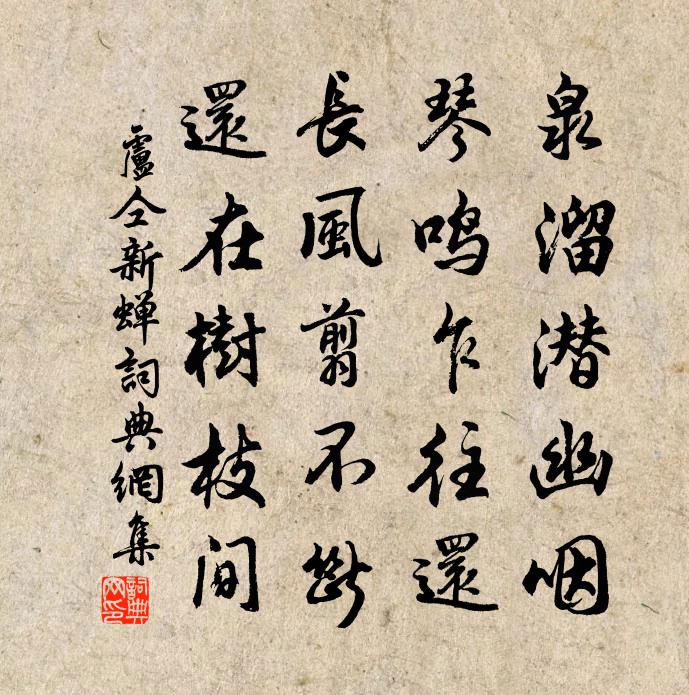 泉溜潜幽咽
琴鸣乍往還
長風翦不斷
還在樹枝间
盧仝新蝉詞典網集
詞典網印